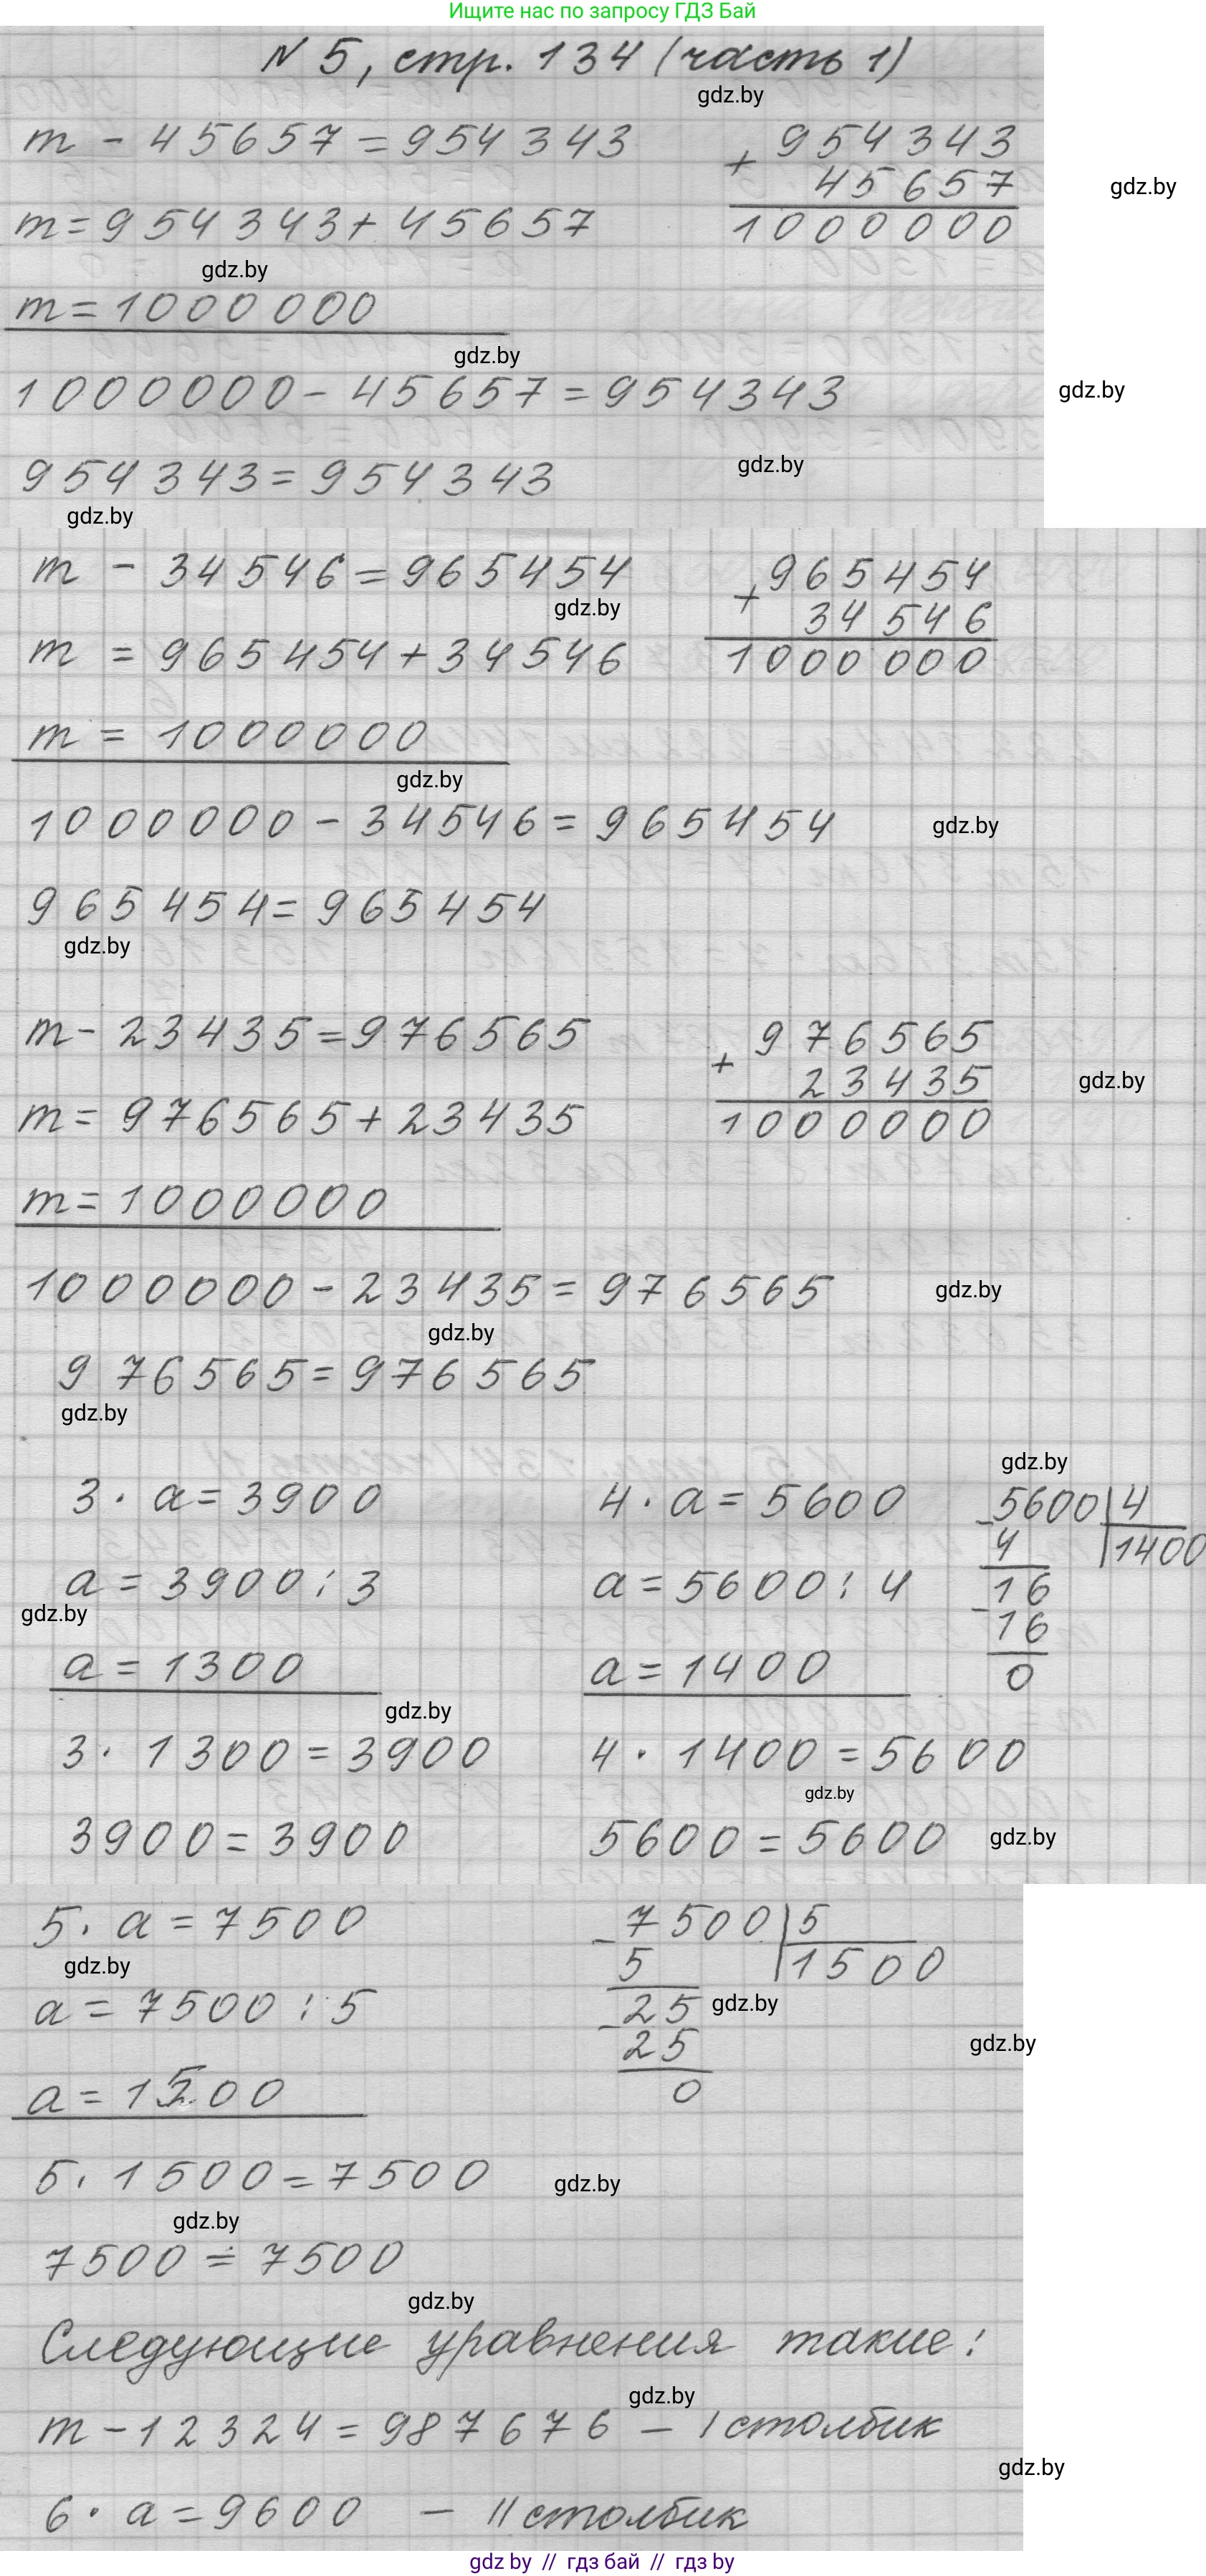 Ищите нас по запросу ГДЗ Бай
N 5, стр. 134 (часть 1)
gdz.by
m - 45657 = 954343
+ 954343
45657
1000000
gdz.by
m = 954343 + 45657
gdz.by
m = 1000000
gdz.by
1000000 - 45657 = 954343
gdz.by
954343 = 954343
gdz.by
gdz.by
m - 34546 = 965454
+ 965454
34546
1000000
gdz.by
m = 965454 + 34546
m = 1000000
gdz.by
1000000 - 34546 = 965454
gdz.by
965454 = 965454
gdz.by
m - 23435 = 976565
+ 976565
23435
1000000
gdz.by
m = 976565 + 23435
m = 1000000
1000000 - 23435 = 976565
gdz.by
gdz.by
976565 = 976565
gdz.by
3 · a = 3900
a = 3900 : 3
gdz.by
a = 1300
gdz.by
3 · 1300 = 3900
3900 = 3900
4 · a = 5600
a = 5600 : 4
a = 1400
4 · 1400 = 5600
gdz.by
5600 = 5600
gdz.by
gdz.by
- 5600 | 4
4 | 1400
- 16
16
0
5 · a = 7500
gdz.by
a = 7500 : 5
a = 1500
- 7500 | 5
5 | 1500
- 25
25
0
gdz.by
gdz.by
5 · 1500 = 7500
gdz.by
gdz.by
7500 = 7500
gdz.by
Следующие уравнения такие:
gdz.by
m - 12324 = 987676 – I столбик
gdz.by
6 · a = 9600 – II столбик
gdz by // гдз бай // гдз by